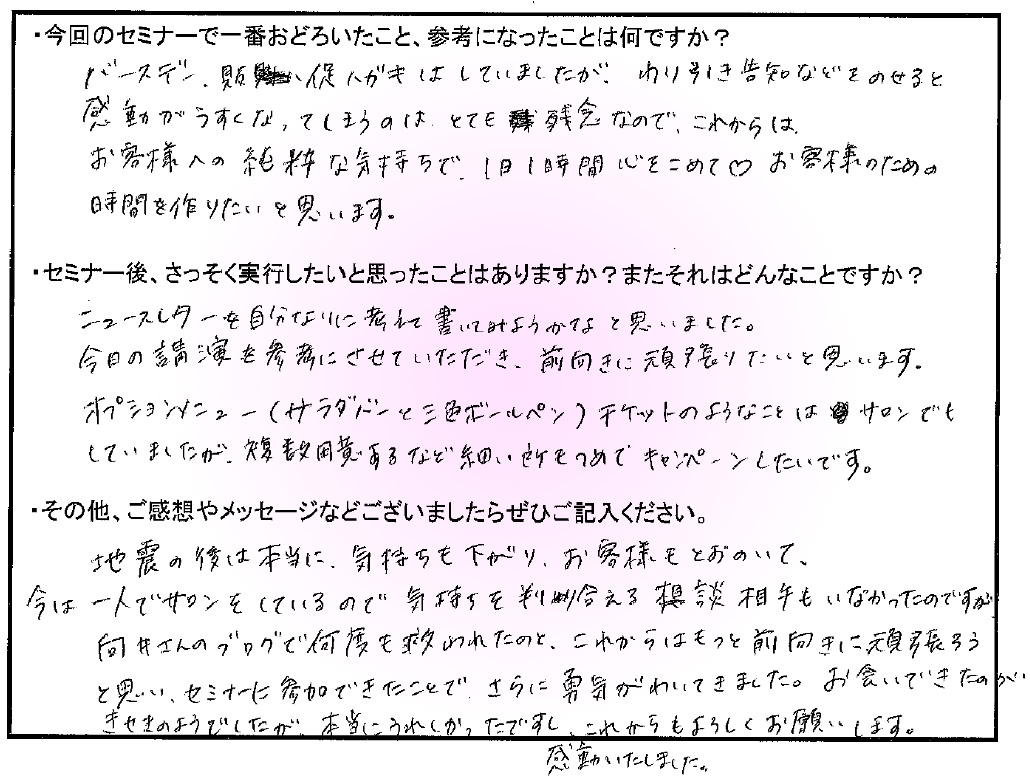 ・今回のセミナーで一番おどろいたこと、参考になったことは何ですか？
バースデン、販促ハガキはしていましたが、わり引き告知などをのせると
感動がうすくなってしまうのは、とても残念なので、これからは、
お客様への純粋な気持ちで、1日1時間心をこめて♡お客様のための
時間を作りたいと思います。
・セミナー後、さっそく実行したいと思ったことはありますか？またそれはどんなことですか？
ニュースレターを自分なりに考えて書いてみようかなと思いました。
今日の講演を参考にさせていただき、前向きに頑張りたいと思います。
オプションメニュー(サラダバーと三色ボールペン)チケットのようなことはサロンでも
していましたが、複数用意あるなど細い所もつめてキャンペーンしたいです。
・その他、ご感想やメッセージなどございましたらぜひご記入ください。
地震の後は本当に、気持ちも下がり、お客様もとおのいて、
今は一人でサロンをしているので気持ちを判り合える相談相手もいなかったのですが
向井さんのブログで何度も救われたのと、これからはもっと前向きに頑張ろう
と思い、セミナーに参加できたことで、さらに勇気がわいてきました。お会いできたのが
きせきのようでしたが、本当にうれしかったですし、これからもよろしくお願いします。
感動いたしました。